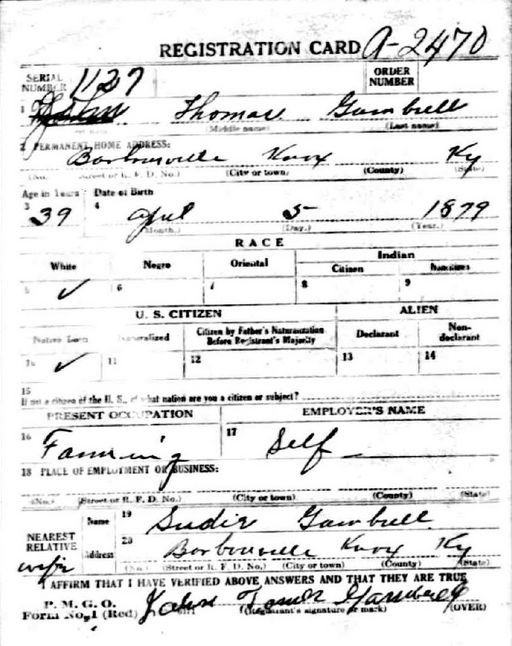 REGISTRATION CARD A-2470
SERIAL NUMBER 1127 ORDER NUMBER
1 Thomas Gambell
(Middle name) (Last name)
2 PERMANENT HOME ADDRESS:
Barbourville Knox Ky
(No.) (Street or R. F. D. No.) (City or town) (County) (State)
Age in Years Date of Birth
3 39 4 April 5 1879
(Month.) (Day.) (Year.)
RACE
White Negro Oriental Indian
Citizen Noncitizen
5 ✓ 6 7 8 9
U. S. CITIZEN ALIEN
Native Born Naturalized Citizen by Father's Naturalization Before Registrant's Majority Declarant Non-declarant
10 ✓ 11 12 13 14
15
If not a citizen of the U. S., of what nation are you a citizen or subject?
PRESENT OCCUPATION EMPLOYER'S NAME
16 Farming 17 Self
18 PLACE OF EMPLOYMENT OR BUSINESS:
(No.) (Street or R. F. D. No.) (City or town) (County) (State)
NEAREST RELATIVE Name 19 Sudie Gambell
wife Address 20 Barbourville Knox Ky
(No.) (Street or R. F. D. No.) (City or town) (County) (State)
I AFFIRM THAT I HAVE VERIFIED ABOVE ANSWERS AND THAT THEY ARE TRUE
P. M. G. O.
Form No. 1 (Red) Gambrell (Registrant's signature or mark) (OVER)